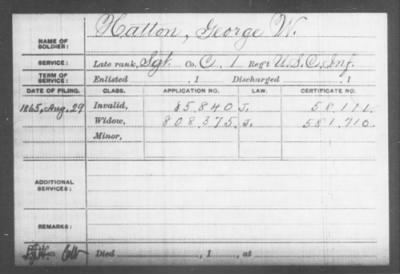 NAME OF SOLDIER: Hatton, George W.
SERVICE: Late rank, Sgt. Co. C, 1 Reg't U.S.C. Inf.
TERM OF SERVICE: Enlisted , 1 Discharged , 1
DATE OF FILING. CLASS. APPLICATION NO. LAW. CERTIFICATE NO.
1865, Aug. 29 Invalid, 85.840 J. 58.111.
Widow, 808.375. J. 581.710.
Minor,
ADDITIONAL SERVICES:
REMARKS:
Died , 1 , at